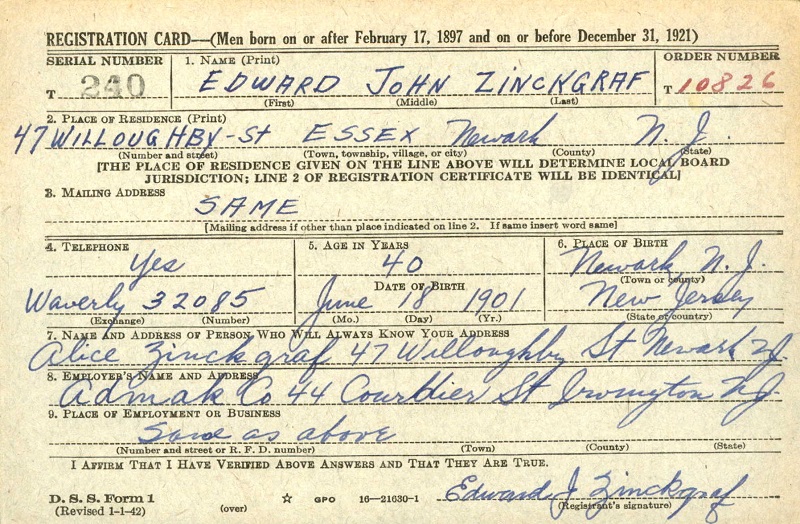 REGISTRATION CARD—(Men born on or after February 17, 1897 and on or before December 31, 1921)
SERIAL NUMBER 1. NAME (Print) ORDER NUMBER
T 240 EDWARD JOHN ZINCKGRAF T 10826
(First) (Middle) (Last)
2. PLACE OF RESIDENCE (Print)
47 WILLOUGHBY-St ESSEX Newark N. J.
(Number and street) (Town, township, village, or city) (County) (State)
[THE PLACE OF RESIDENCE GIVEN ON THE LINE ABOVE WILL DETERMINE LOCAL BOARD
JURISDICTION; LINE 2 OF REGISTRATION CERTIFICATE WILL BE IDENTICAL]
3. MAILING ADDRESS
SAME
[Mailing address if other than place indicated on line 2. If same insert word same]
4. TELEPHONE 5. AGE IN YEARS 6. PLACE OF BIRTH
Yes 40 Newark N. J.
DATE OF BIRTH (Town or county)
Waverly 32085 June 18 1901 New Jersey
(Exchange) (Number) (Mo.) (Day) (Yr.) (State or country)
7. NAME AND ADDRESS OF PERSON WHO WILL ALWAYS KNOW YOUR ADDRESS
Alice Zinckgraf 47 Willoughby St Newark N.J.
8. EMPLOYER'S NAME AND ADDRESS
Admak Co 44 St Irvington N.J.
9. PLACE OF EMPLOYMENT OR BUSINESS
Same as above
(Number and street or R. F. D. number) (Town) (County) (State)
I AFFIRM THAT I HAVE VERIFIED ABOVE ANSWERS AND THAT THEY ARE TRUE.
D. S. S. Form 1 GPO 16—21630-1 Edward J Zinckgraf
(Revised 1-1-42) (over) (Registrant's signature)